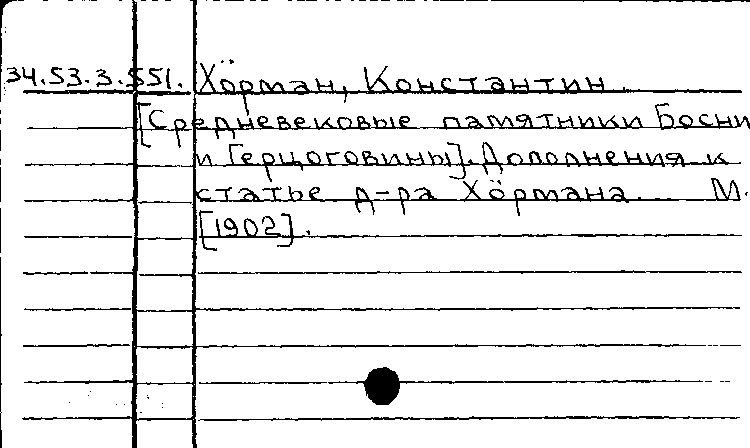 34.53.3.551. Хӧрман, Константин.
[Средневековые памятники Босни
и Герцоговины]. Дополнения к
статье д-ра Хӧрмана... М.
[1902].